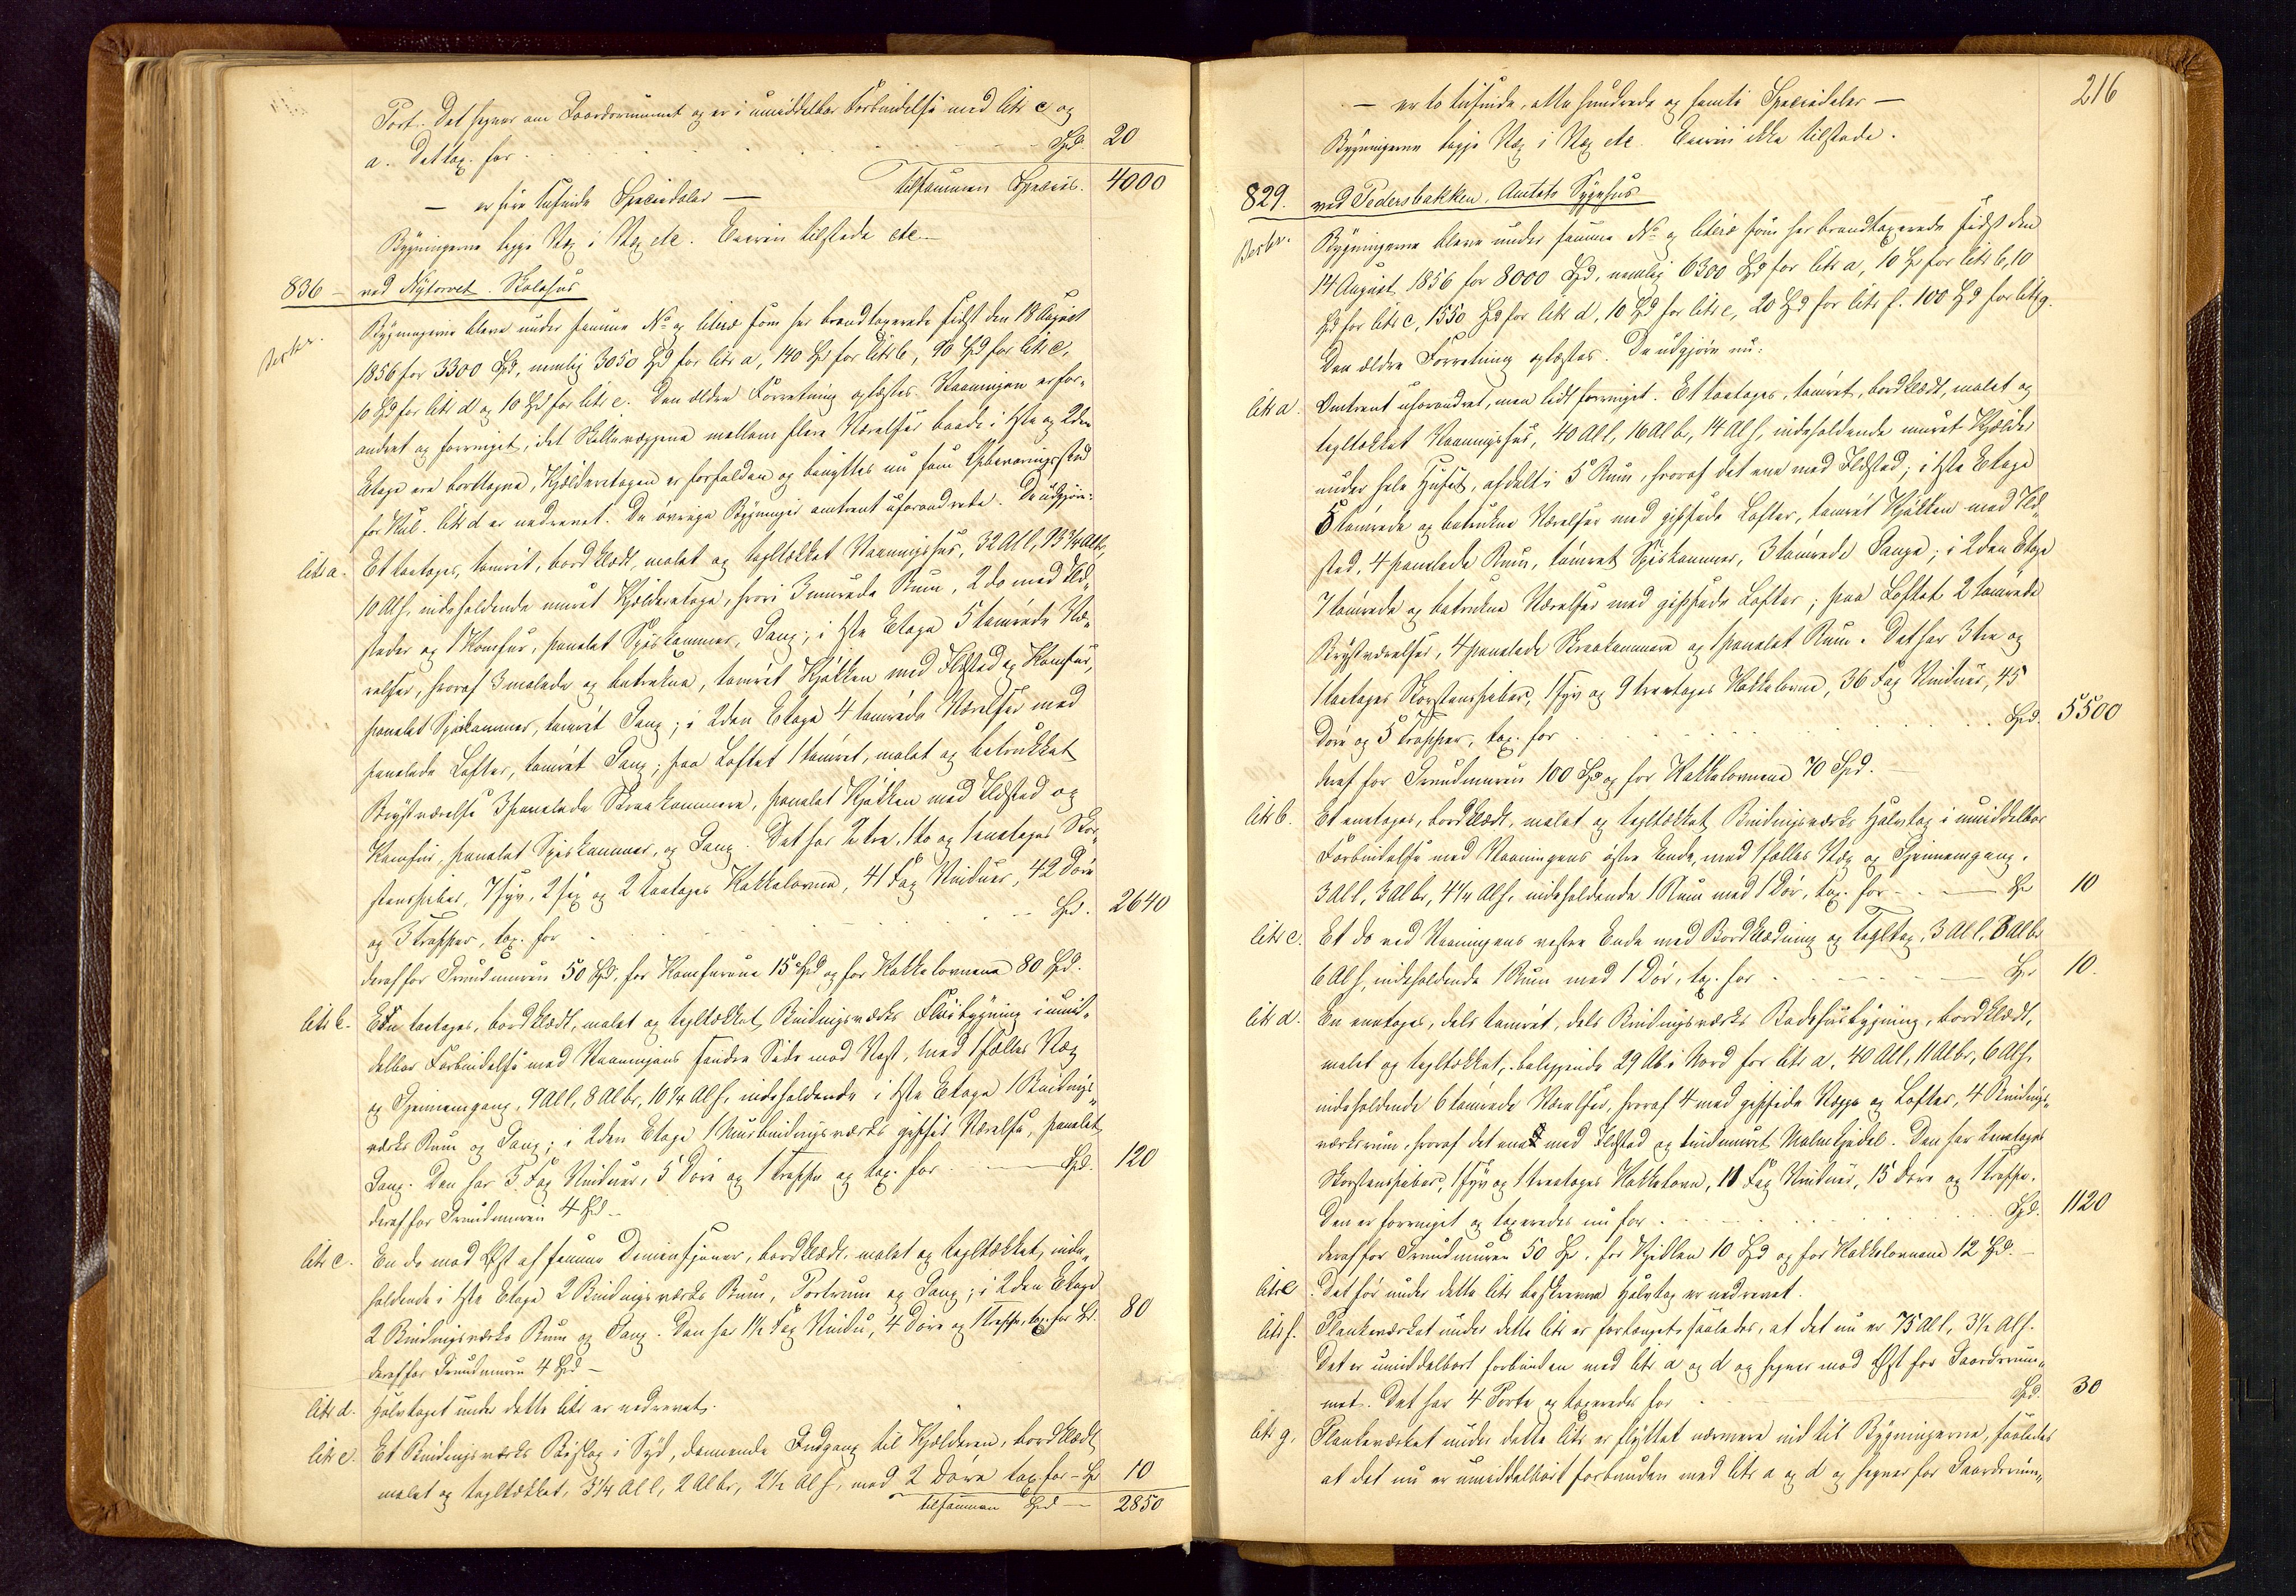 Port. Det hegner om Gaardsrummet og er i umiddelbar Forbindelse med litr c og
a. Det tax. for Spd. 20
tilsammen Species. 4000
— er fire tusinde Speciedaler —
Bygningerne ligge Væg i Væg etc. Eieren tilstede etc. —
836 — ved Nytorvet. Skolehus
Bygningerne bleve under samme No og litera som her brandtaxerede sidst den 18 August
1856 for 3300 Spd, nemlig 3050 Spd for litr a, 140 Spd for litr b, 90 Spd for litr c,
10 Spd for litr d og 10 Spd for litr e. Den ældre Forretning oplæstes. Vaaningen er for-
andret og forringet, idet Skillevæggene mellem flere Værelser baade i 1ste og 2den
Etage ere borttagne, Kjælderetagen er forfalden og benyttes nu som Opbevaringssted
for Kul. litr d er nedrevet. De øvrige Bygninger omtrent uforandrede. De udgjøre:
litr a. Et toetages, tømret, bordklædt, malet og tegltækket Vaaningshus, 32 Al l, 13 3/4 Al br,
10 Al h, indeholdende muret Kjælderetage, hvori 3 murede Rum, 2 do med Ild-
steder og 1 Komfur, panelet Spiskammer, Gang; i 1ste Etage 5 tømrede Væ-
relser, hvoraf 3 malede og betrukne, tømret Kjøkken med Ildsted og Komfur,
panelet Spiskammer, tømret Gang; i 2den Etage 4 tømrede Værelser med
panelede Lofter, tømret Gang; paa Loftet 1 tømret, malet og betrukket
Brystværelse 3 panelede Skraakammere, panelet Kjøkken med Ildsted og
Komfur, panelet Spiskammer, og Gang. Det har 2 tre, 1 to og 1 enetages Skor-
stenspiber, 7 fyr, 2 sex og 2 toetages Kakkelovne, 41 Fag Vinduer, 42 Døre
og 3 Trapper, tax. for Spd. 2640
deraf for Grundmuren 50 Spd, for Komfurene 15 Spd og for Kakkelovnene 80 Spd.
litr b. En toetages, bordklædt, malet og tegltækket Bindingsværks Fløibygning i umid-
delbar Forbindelse med Vaaningens søndre Side mod Vest, med 1 fælles Væg
og Gjennemgang, 9 Al l, 8 Al br, 10 1/4 Al h, indeholdende i 1ste Etage 1 Bindings-
værks Rum og Gang; i 2den Etage 1 Murbindingsværks gipset Værelse, panelet
Gang. Den har 3 Fag Vinduer, 5 Døre og 1 Trappe og tax. for Spd. 120
deraf for Grundmuren 4 Spd —
litr c. En do mod Øst af samme Dimensjoner, bordklædt, malet og tegltækket, inde-
holdende i 1ste Etage 2 Bindingsværks Rum, Portrum og Gang; i 2den Etage
2 Bindingsværks Rum og Gang. Den har 1 1/2 Fag Vindu, 4 Døre og 1 Trappe, tax. for Spd. 80
deraf for Grundmuren 4 Spd —
litr d. Halvtaget under dette litr er nedrevet.
litr e. Et Bindingsværks Bislag i Syd, dannende Indgang til Kjælderen, bordklædt
malet og tegltækket, 3 1/4 Al l, 2 Al br, 2 1/2 Al h, med 2 Døre tax. for — Spd 10
tilsammen Spd — 2850
216
— er to tusinde, otte hundrede og femti Speciedaler —
Bygningerne ligge Væg i Væg etc. Eieren ikke tilstede.
829. ved Pedersbakken, Amtets Sygehus
Bygningerne bleve under samme No og litera som her brandtaxerede sidst den
14 August 1856 for 8000 Spd, nemlig 6300 Spd for litr a, 10 Sp for litr b, 10
Spd for litr c, 1550 Spd for litr d, 10 Spd for litr e, 20 Spd for litr f. 100 Spd for litr g.
Den ældre Forretning oplæstes. De udgjøre nu:
litr a. Omtrent uforandret, men lidt forringet. Et toetages, tømret, bordklædt, malet og
tegltækket Vaaningshus, 40 Al l, 16 Al br, 14 Al h, indeholdende muret Kjælder
under hele Huset, afdelt i 5 Rum, hvoraf det ene med Ildsted; i 1ste Etage
5 tømrede og betrukne Værelser med gipsede Lofter, tømret Kjøkken med Ild-
sted, 4 panelede Rum, tømret Spiskammer, 3 tømrede Gange; i 2den Etage
7 tømrede og betrukne Værelser med gipsede Lofter; paa Loftet 2 tømrede
Brystværelser, 4 panelede Skraakammere og 1 panelet Rum. Det har 3 tre og
1 toetages Skorstenspiber, 1 fyr og 9 treetages Kakkelovne, 36 Fag Vinduer, 45
Døre og 5 Trapper, tax. for Spd. 5500
deraf for Grundmuren 100 Spd og for Kakkelovnene 70 Spd.
litr b. Et enetages, bordklædt, malet og tegltækket Bindingsværks Halvtag i umiddelbar
Forbindelse med Vaaningens østre Ende, med 1 fælles Væg og Gjennemgang,
3 Al l, 3 Al br, 4 1/4 Al h, indeholdende 1 Rum med 1 Dør, tax. for Sp 10
litr c. Et do ved Vaaningens vestre Ende med Bordklædning og Tegltag, 3 Al l, 3 Al br
6 Al h, indeholdende 1 Rum med 1 Dør, tax. for Sp 10.
litr d. En enetages, dels tømret, dels Bindingsværks Badehusbygning, bordklædt,
malet og tegltækket, beliggende 29 Al i Nord for litr a, 40 Al l, 11 Al br, 6 Al h,
indeholdende 6 tømrede Værelser, hvoraf 4 med gipsede Vægge og Lofter, 4 Bindings-
værksrum, hvoraf det ene med Ildsted og indmuret Malmkjedel. Den har 2 enetages
Skorstenspiber, 1 fyr og 1 treetages Kakkelovn, 11 Fag Vinduer, 15 Døre og 1 Trappe.
Den er forringet og taxeredes nu for Spd. 1120
deraf for Grundmuren 50 Sp. for Kjedlen 10 Spd og for Kakkelovnene 12 Spd. —
litr e. Det før under dette litr beskrevne Halvtag er nedrevet.
litr f. Plankeværket under dette litr er forlænget saaledes, at det nu er 75 Al l, 3 1/2 Al h.
Det er umiddelbart forbunden med litr a og d og hegner mod Øst for Gaardsrum-
met. Det har 4 Porte og taxeredes for Spd. 30
litr g. Plankeværket under dette litr er flyttet nærmere ind til Bygningerne, saaledes
at det nu er umiddelbart forbunden med litr a og d og hegner for Gaardsrum-